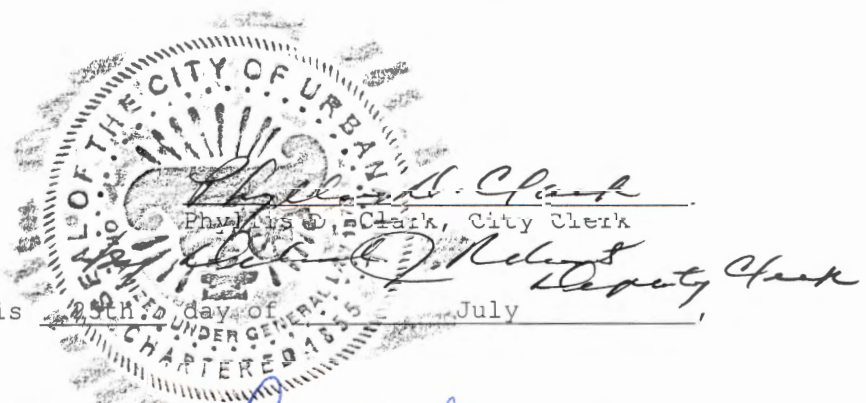 SEAL OF THE CITY OF URBANA
CHARTERED 1855
UNDER GENERAL
Phyllis D. Clark
Phyllis D. Clark, City Clerk
Deputy Clerk
is 25th day of July,